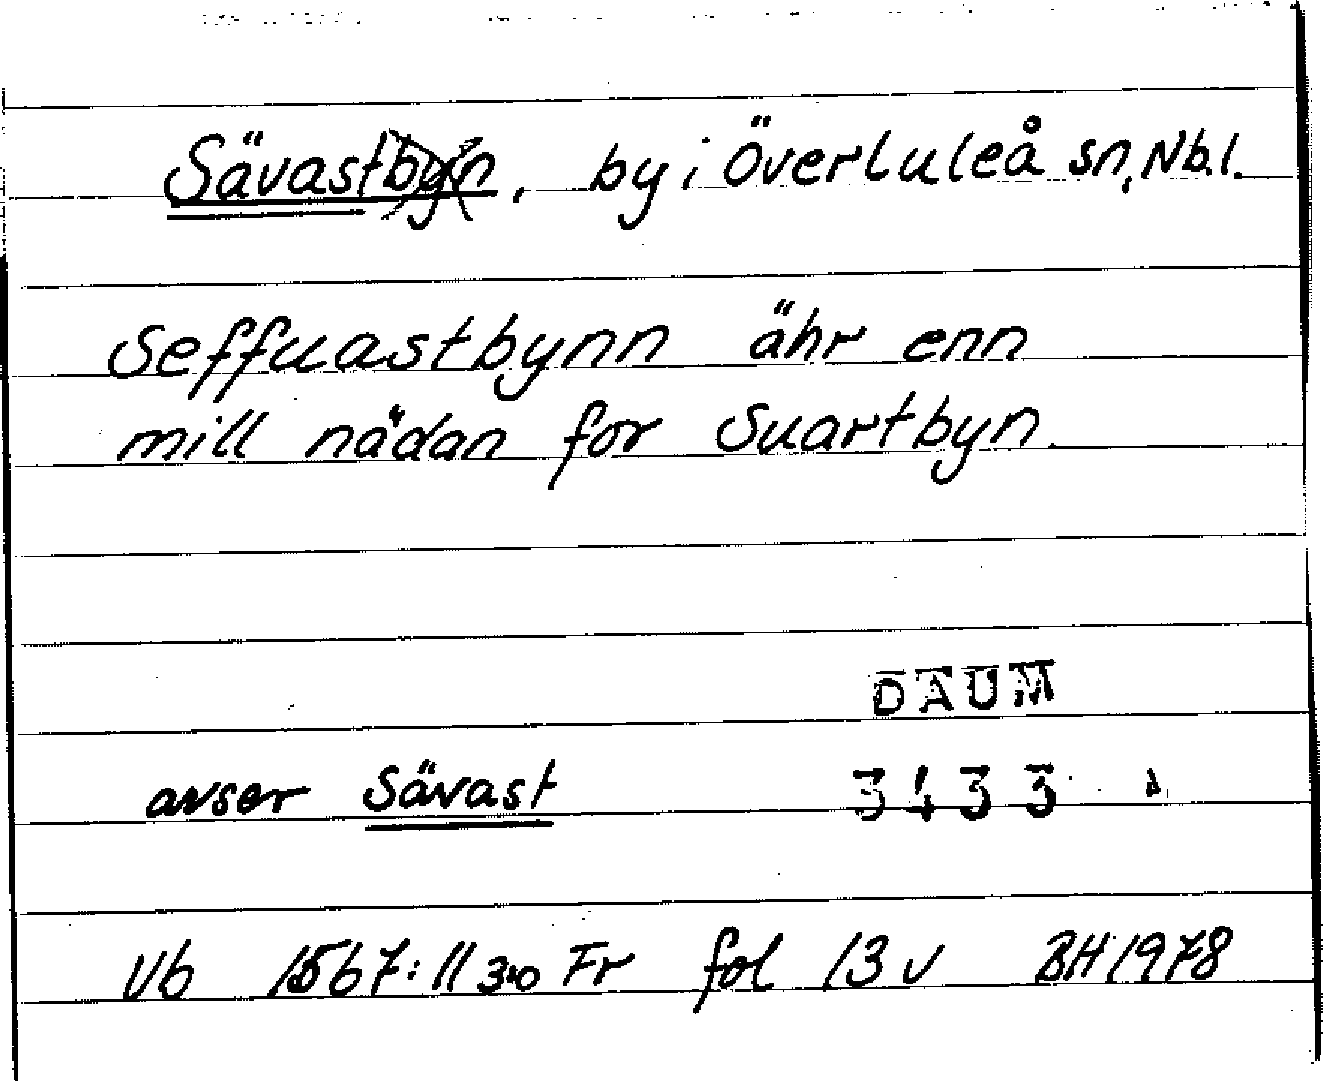 Sävastbyn, by i Överluleå sn, Nb.l.
Seffuastbynn ähr enn
mill nädan for Suartbyn.
DAUM
avser Sävast 3433
Vb 1567:11 Fr fol 13 v BH 1978